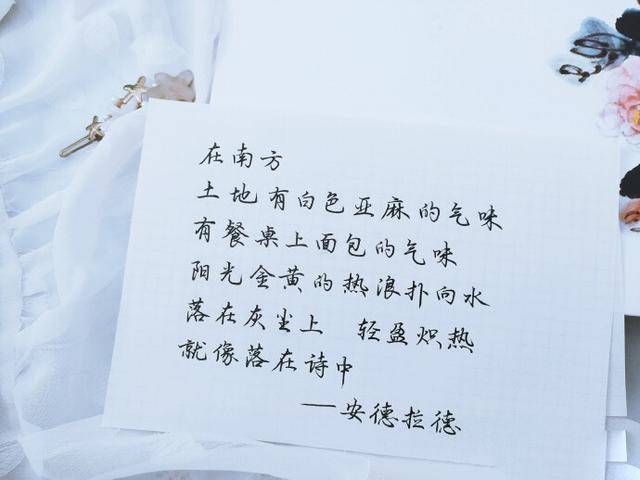 在南方
土地有白色亚麻的气味
有餐桌上面包的气味
阳光金黄的热浪扑向水
落在灰尘上 轻盈炽热
就像落在诗中
——安德拉德